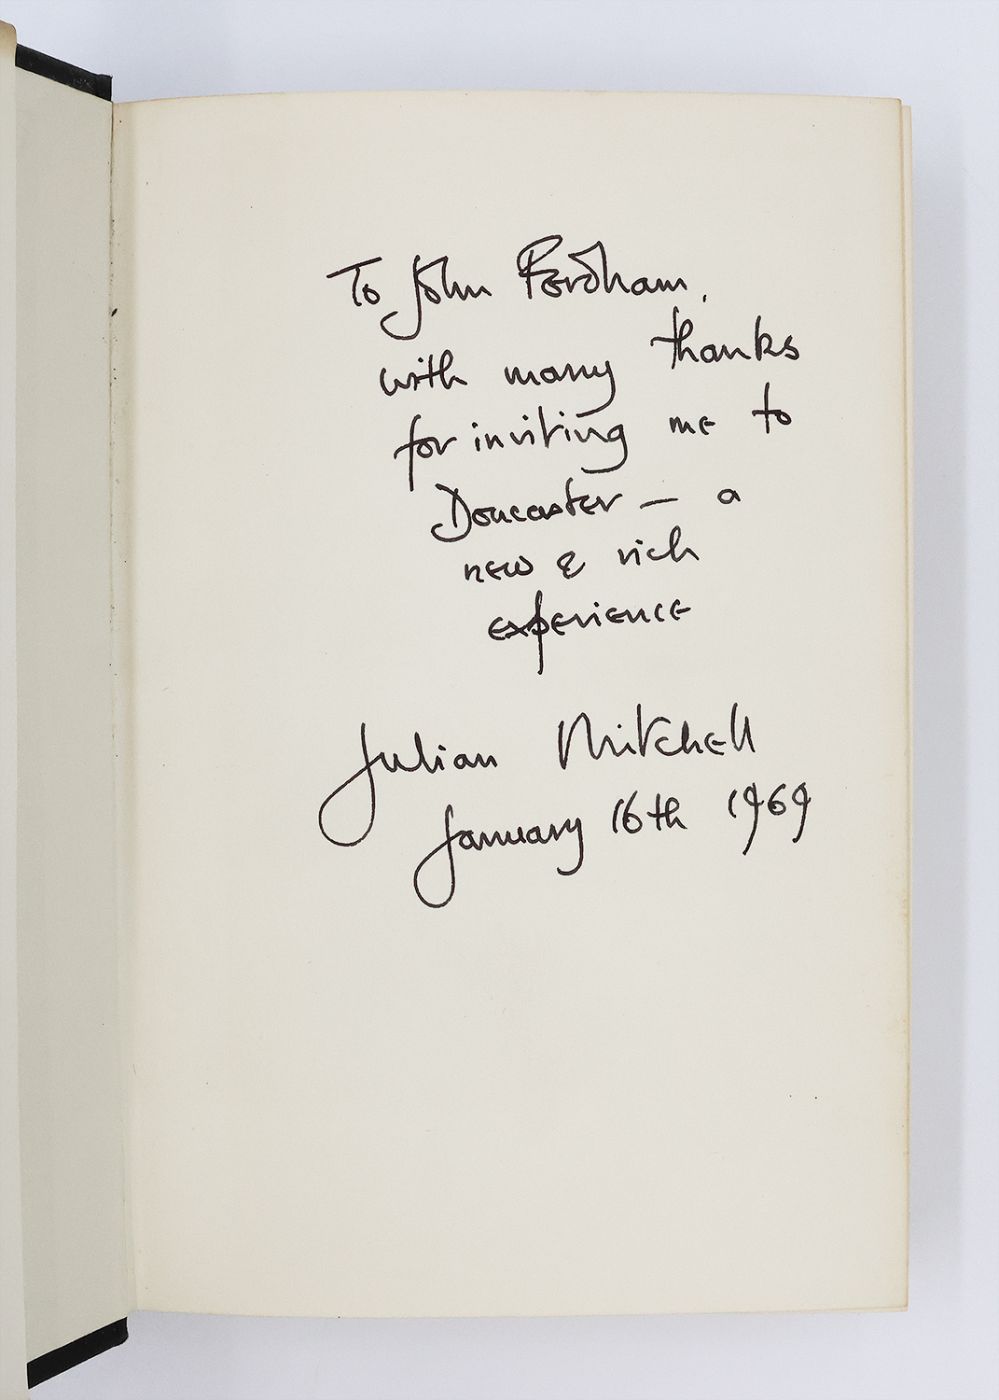 To John Fordham,
with many thanks
for inviting me to
Doncaster — a
new & rich
experience
Julian Mitchell
January 16th 1969